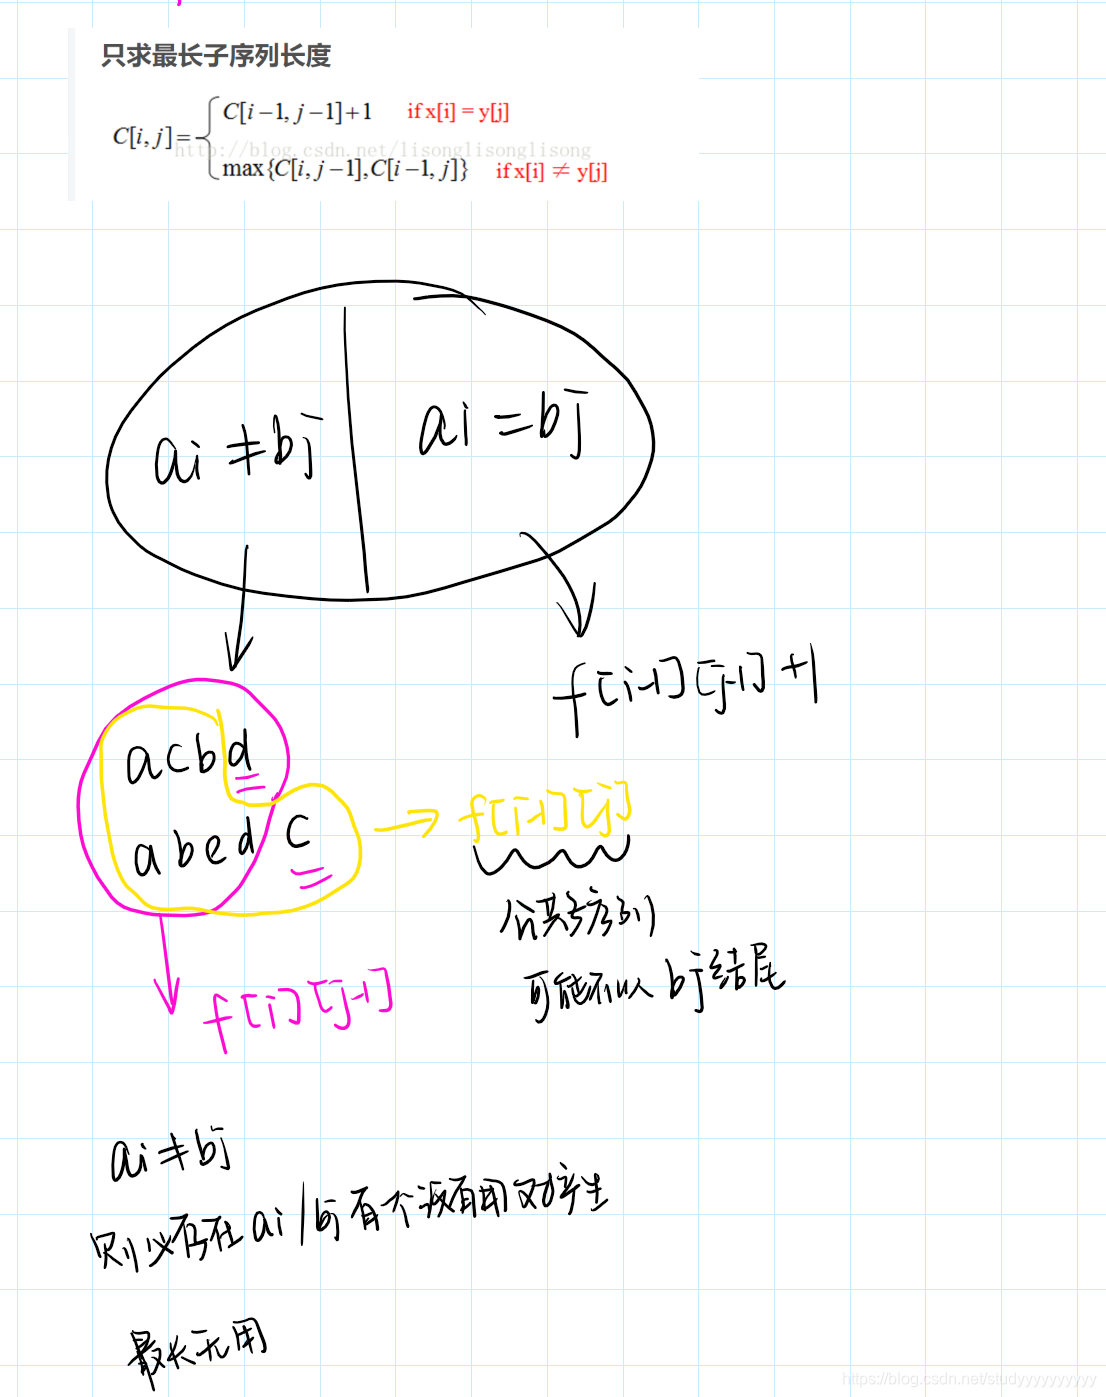 只求最长子序列长度
C[i-1, j-1]+1 if x[i] = y[j]
C[i, j]=
http://blog.csdn.net/lisonglisonglisong
max{C[i, j-1],C[i-1, j]} if x[i] ≠ y[j]
ai ≠ bj
ai = bj
f[i-1][j-1]+1
acbd
abedc
f[i-1][j]
公共子序列
可能不以bj结尾
f[i][j-1]
ai ≠ bj
则必存在ai/bj有个没有用对产生
最长无用
https://blog.csdn.net/studyyyyyyyyyy